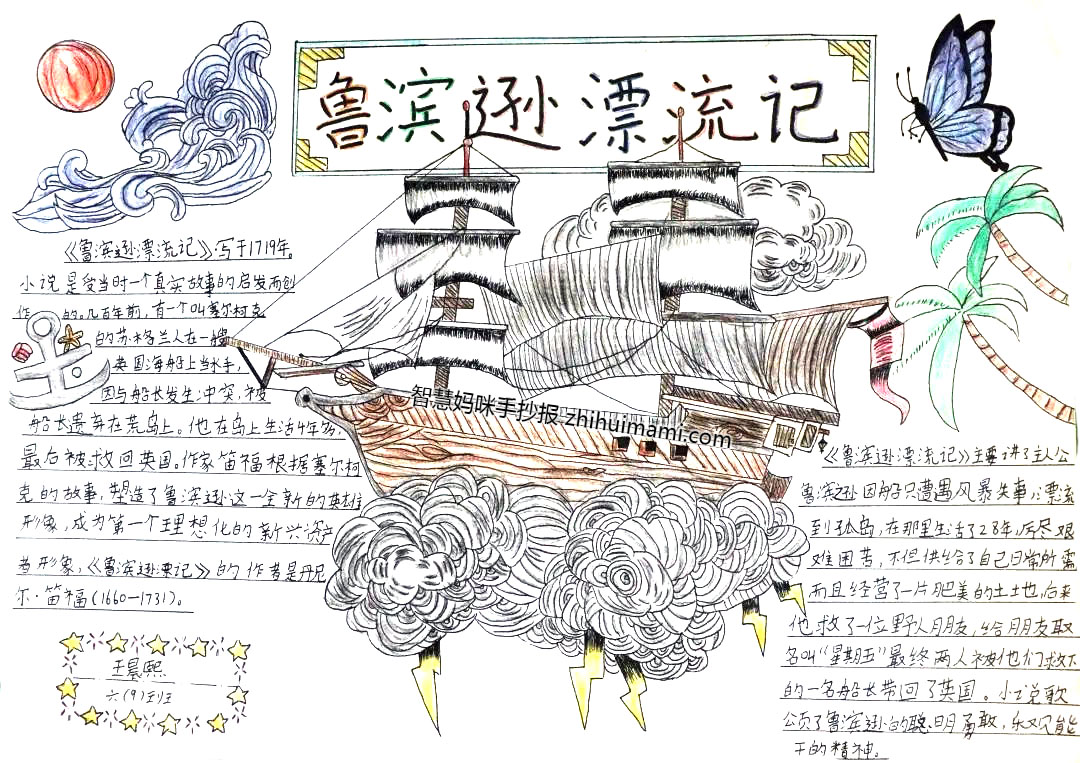 鲁滨逊漂流记
《鲁滨逊漂流记》写于1719年。
小说是受当时一个真实故事的启发而创
作的。几百年前,有一个叫塞尔柯克
的苏格兰人在一艘
英国海船上当水手,
因与船长发生冲突,被
船长遗弃在荒岛上。他在岛上生活4年多,
最后被救回英国。作家笛福根据塞尔柯
克的故事,塑造了鲁滨逊这一全新的英雄
形象,成为第一个理想化的新兴资产
者形象,《鲁滨逊漂记》的作者是丹尼
尔·笛福(1660—1731)。
王晨熙
六(9)班
智慧妈咪手抄报 zhihuimami.com
《鲁滨逊漂流记》主要讲了主人公
鲁滨孙因船只遭遇风暴失事,漂流
到孤岛,在那里生活了28年,历尽艰
难困苦,不但供给了自己日常所需
而且经营了一片肥美的土地,后来
他救了一位野人朋友,给朋友取
名叫“星期五”最终两人被他们救下
的一名船长带回了英国。小说歌
颂了鲁滨逊的聪明勇敢,乐观能
干的精神。